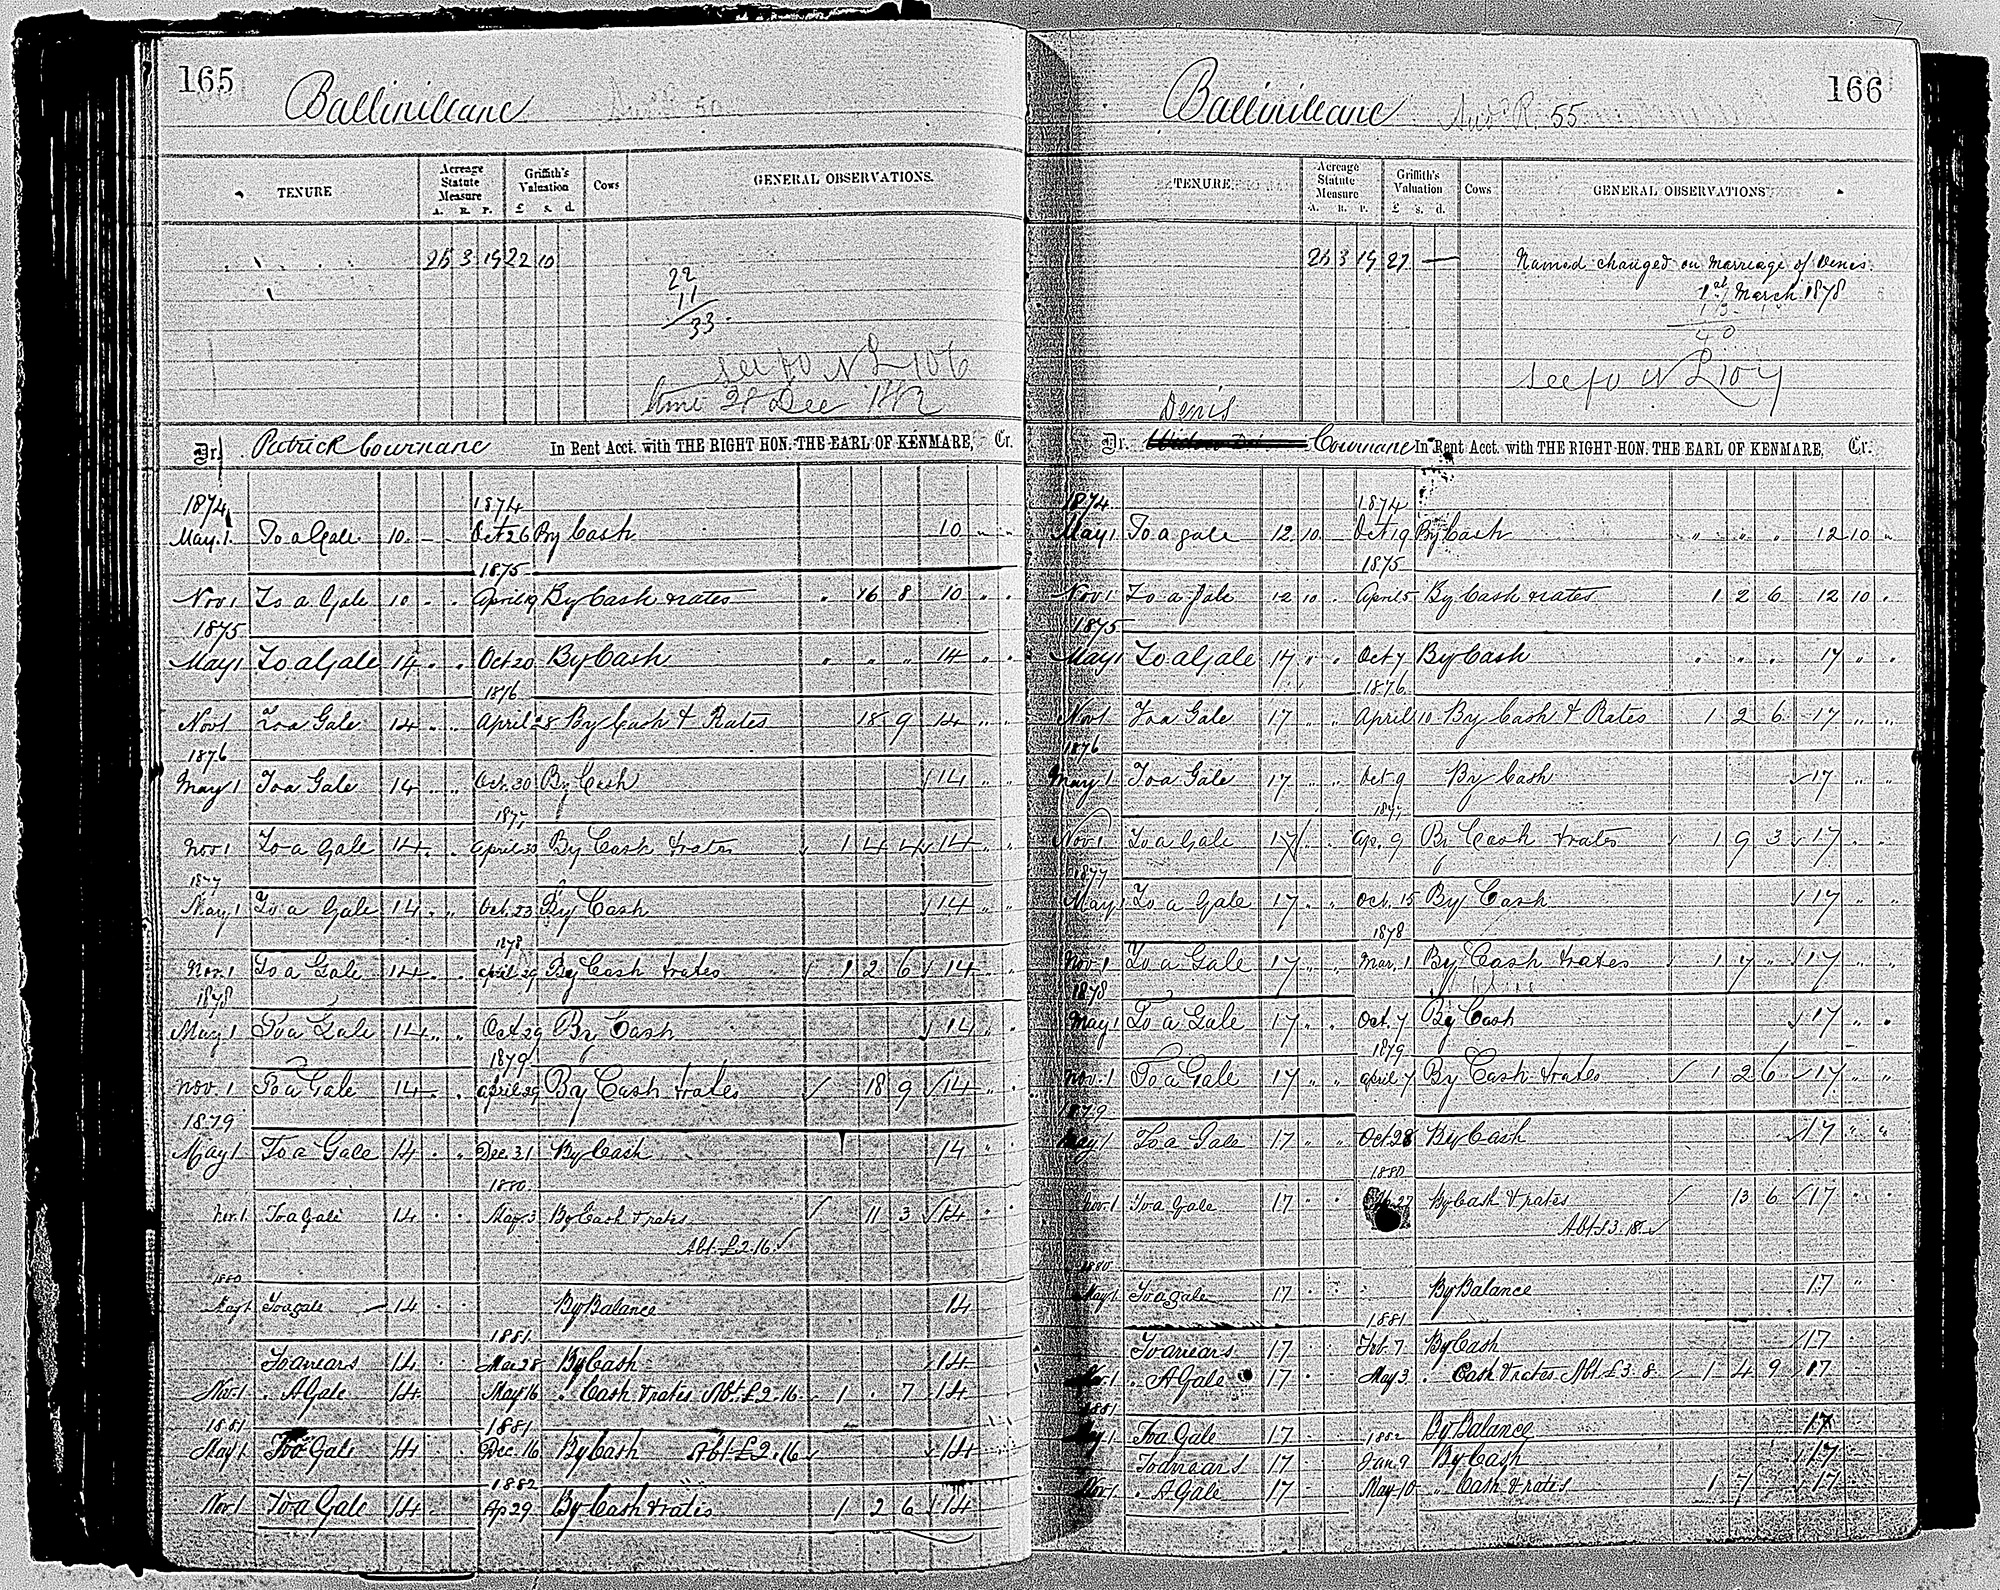 165
Ballinillane
TENURE Acreage Statute Measure A. R. P. Griffith's Valuation £ s. d. Cows GENERAL OBSERVATIONS.
26 3 19 22 10
22
11
33
see fo N L 106
28 Dec
Dr. Patrick Cournane In Rent Acct. with THE RIGHT HON. THE EARL OF KENMARE, Cr.
1874 1874
May. 1. To a Gale 10 - - Oct 26 By Cash 10 " "
1875
Nov 1 To a Gale 10 " " April 19 By Cash & rates " 16 8 10 " "
1875
May 1 To a Gale 14 " " Oct 20 By Cash " " " 14 " "
1876
Nov 1 To a Gale 14 " " April 28 By Cash & Rates 18 9 14 " "
1876
May 1 To a Gale 14 " " Oct. 30 By Cash 14 " "
1877
Nov 1 To a Gale 14 " " April 30 By Cash & rates 1 4 4 14 " "
1877
May 1 To a Gale 14 " " Oct. 23 By Cash 14 " "
1878
Nov. 1 To a Gale 14 " " April 29 By Cash & rates 1 2 6 14 " "
1878
May 1 To a Gale 14 " " Oct. 29 By Cash 14 " "
1879
Nov. 1 To a Gale 14 " " April 29 By Cash & rates 18 9 14 " "
1879
May 1 To a Gale 14 " " Dec. 31 By Cash 14 "
1880
Nov. 1 To a Gale 14 " " May. 3 By Cash & rates 11 3 14 " "
Abt. £2.16.
1880
May 1 To a gale 14 " " By Balance 14
1881
To arrears 14 " Mar 28 By Cash 14
Nov. 1 " A Gale 14 May 16 " Cash & rates Abt. £2.16. 1 . 7 14
1881 1881
May 1 To a Gale 14 Dec. 16 By Cash Abt £2.16 14
1882
Nov. 1 To a Gale 14 Ap 29 By Cash & rates 1 2 6 14
166
Ballinillane And. R. 55
TENURE. Acreage Statute Measure A. R. P. Griffith's Valuation £ s. d. Cows GENERAL OBSERVATIONS
26 3 19 27 — Named changed on marriage of Denis.
1st March 1878
13
40
see fo N L 107
Denis
Dr. Cournane In Rent Acct. with THE RIGHT HON. THE EARL OF KENMARE, Cr.
1874 1874
May 1 To a gale 12 10 Oct 19 By Cash " " " 12 10 "
1875
Nov 1 To a Gale 12 10 " April 5 By Cash & rates 1 2 6 12 10 "
1875
May 1 To a Gale 17 " " Oct 7 By Cash " " " 17 " "
1876
Nov 1 To a Gale 17 " " April 10 By Cash & Rates 1 2 6 17 " "
1876
May 1 To a Gale 17 " " Oct 9 By Cash 17 " "
1877
Nov 1 To a Gale 17 " " Ap. 9 By Cash & rates 1 9 3 17 " "
1877
May 1 To a Gale 17 " " Oct. 15 By Cash 17 " "
1878
Nov. 1 To a Gale 17 " " Mar. 1 By Cash & rates 1 7 " 17 " "
1878
May 1 To a Gale 17 " " Oct. 7 By Cash 17 " "
1879
Nov. 1 To a Gale 17 " " April 7 By Cash & rates 1 2 6 17 " "
1879
May 1 To a Gale 17 " " Oct 28 By Cash 17 " "
1880
Nov. 1 To a Gale 17 " " 27 By Cash & rates 13 6 17 " "
Abt. £3.8.
1880
May 1 To a gale 17 " " By Balance 17 "
1881
To arrears 17 " Feb. 7 By Cash 17 "
Nov 1 " A Gale 17 " May 3 " Cash & rates Abt. £3.8. 1 4 9 17
1881
May 1 To a Gale 17 By Balance 17
1882
To arrears 17 Jan. 9 By Cash 17
Nov 1 " A Gale 17 May 10 " Cash & rates 1 7 " 17